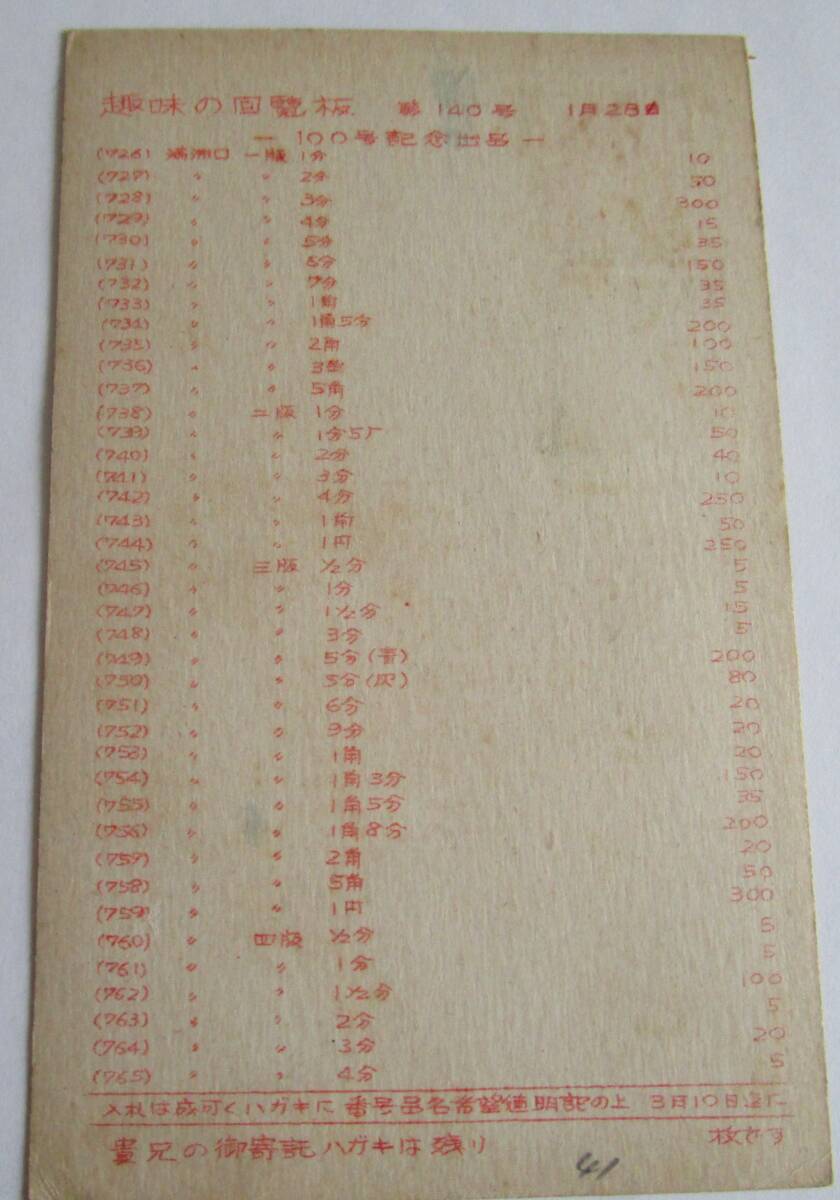 趣味の回覧板 第140号 1月28日
— 100号記念出品 —
(726) 満洲口 一版 1分 10
(727) 〃 〃 2分 50
(728) 〃 〃 3分 300
(729) 〃 〃 4分 15
(730) 〃 〃 5分 35
(731) 〃 〃 6分 150
(732) 〃 〃 7分 35
(733) 〃 〃 1角 35
(734) 〃 〃 1角5分 200
(735) 〃 〃 2角 100
(736) 〃 〃 3角 150
(737) 〃 〃 5角 200
(738) 〃 二版 1分 10
(739) 〃 〃 1分5厂 50
(740) 〃 〃 2分 40
(741) 〃 〃 3分 10
(742) 〃 〃 4分 250
(743) 〃 〃 1角 50
(744) 〃 〃 1円 250
(745) 〃 三版 ½分 5
(746) 〃 〃 1分 5
(747) 〃 〃 1½分 15
(748) 〃 〃 3分 5
(749) 〃 〃 5分(青) 200
(750) 〃 〃 5分(灰) 80
(751) 〃 〃 6分 20
(752) 〃 〃 9分 20
(753) 〃 〃 1角 20
(754) 〃 〃 1角3分 150
(755) 〃 〃 1角5分 35
(756) 〃 〃 1角8分 200
(757) 〃 〃 2角 20
(758) 〃 〃 5角 50
(759) 〃 〃 1円 300
(760) 〃 四版 ½分 5
(761) 〃 〃 1分 5
(762) 〃 〃 1½分 100
(763) 〃 〃 2分 5
(764) 〃 〃 3分 20
(765) 〃 〃 4分 5
入札は成可くハガキに 番号品名希望値明記の上 3月10日迄に
貴兄の御寄託ハガキは残り 41 枚です